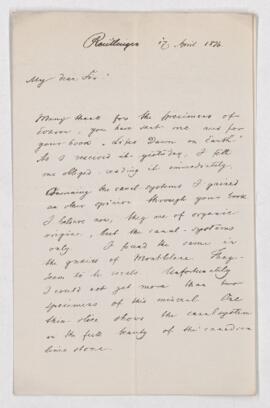 Reutlingen 17 April 1876
My dear Sir!
Many thank for the specimens of
Eozoon, you have sent me and for
your book „Life's Dawn on Earth"
As I received it yesterday, I felt
me obliged, reading it immediately.
Concerning the canal-systems I gained
an other opinion through your book
I believe now, they are of organic
origin, but the canal-systems
only I found the same in
the gneiss of Montblanc. They
seem to be rare. Unfortunately
I could not get more than two
specimens of this mineral. One
thin slice shows the canal system
in the full beauty of the canadian
lime stone.